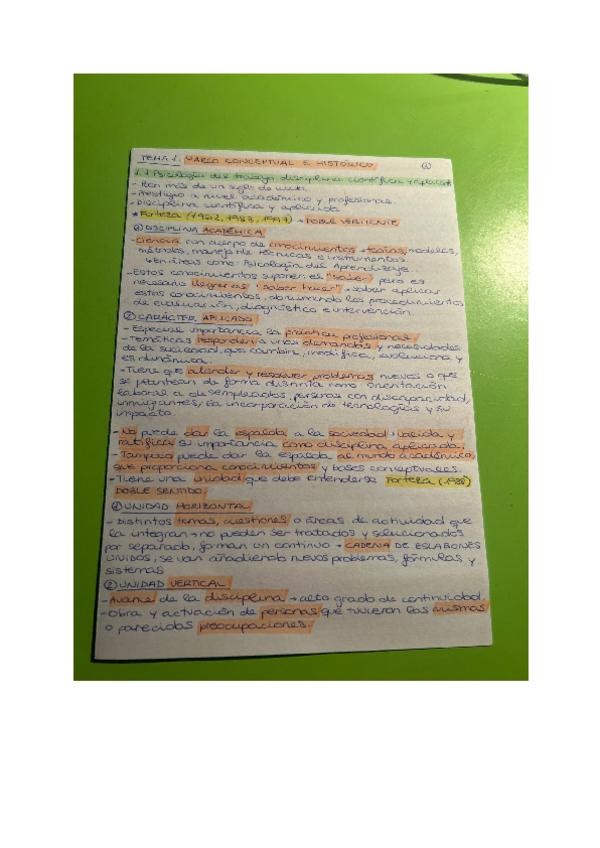 TEMA 1. MARCO CONCEPTUAL E HISTÓRICO ①
1.1 Psicología del trabajo disciplina científica y aplicada
- Han más de un siglo de
- Prestigio a nivel académico y profesional.
- Disciplina científica y aplicada
* Forteza (1982, 1983, 1997) → DOBLE VERTIENTE
① DISCIPLINA ACADÉMICA
- Ciencia con cuerpo de conocimientos → teorías, modelos,
métodos, manejo de técnicas e instrumentos.
en áreas como: Psicología del Aprendizaje.
- Estos conocimientos suponen el "saber" pero es
necesario llegar a "saber hacer" → saber aplicar
estos conocimientos, dominando los procedimientos
de evaluación, diagnóstico e intervención.
② CARÁCTER APLICADO
- Especial importancia la práctica profesional
- Temáticas responden a unas demandas y necesidades
de la sociedad que cambia, modifica, evoluciona y
es dinámica.
- Tiene que atender y resolver problemas nuevos o que
se plantean de forma distinta como orientación
laboral a desempleados, personas con discapacidad,
inmigrantes, la incorporación de tecnologías y su
impacto.
- No puede dar la espalda a la sociedad → valida y
ratifica su importancia como disciplina aplicada.
- Tampoco puede dar la espalda al mundo académico,
que proporciona conocimientos y bases conceptuales.
- Tiene una unidad que debe entenderse Forteza (1988)
DOBLE SENTIDO:
① UNIDAD HORIZONTAL
- Distintos temas, cuestiones o áreas de actividad que
la integran → no pueden ser tratados y solucionados
por separado, forman un continuo → CADENA DE ESLABONES
UNIDOS, se van añadiendo nuevos problemas, fórmulas y
sistemas
② UNIDAD VERTICAL
- Avance de la disciplina → alto grado de continuidad.
- Obra y actuación de personas que tuvieron las mismas
o parecidas preocupaciones.